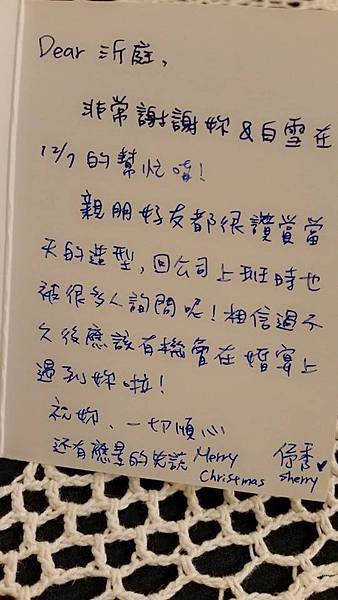 Dear 沂庭,
非常謝謝妳&白雪在
12/7的幫忙唷!
親朋好友都很讚賞當
天的造型,回公司上班時也
被很多人詢問呢!相信過不
久後應該有機會在婚宴上
遇到妳啦!
祝妳、一切順心
還有應景的先說 Merry
Christmas
Sherry